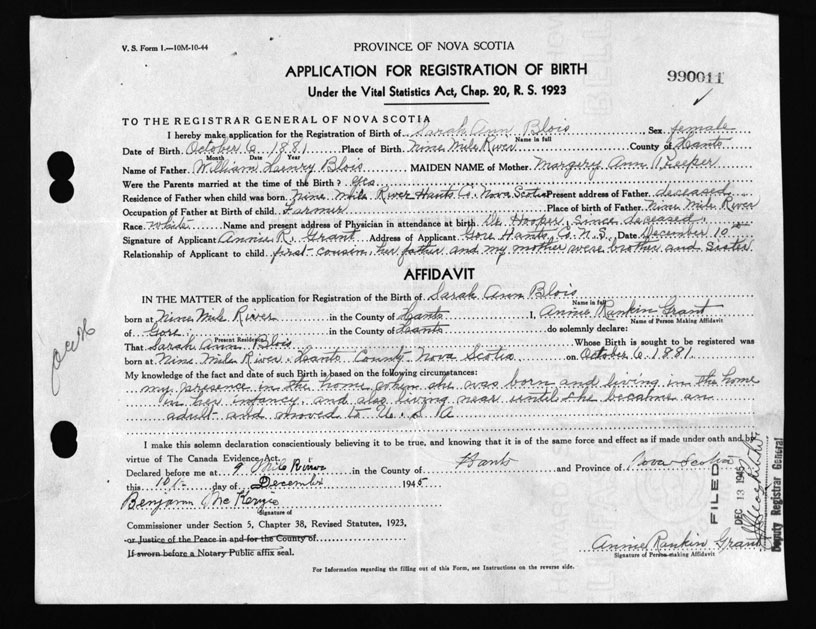 V. S. Form 1.—10M-10-44
PROVINCE OF NOVA SCOTIA
APPLICATION FOR REGISTRATION OF BIRTH
990011
Under the Vital Statistics Act, Chap. 20, R. S. 1923
TO THE REGISTRAR GENERAL OF NOVA SCOTIA
I hereby make application for the Registration of Birth of Sarah Ann Blois, Sex female
Name in full
Date of Birth October 6, 1881 Place of Birth Nine Mile River County of Hants
Month Date Year
Name of Father William Henry Blois MAIDEN NAME of Mother Margery Ann
Were the Parents married at the time of the Birth? Yes
Residence of Father when child was born Nine Mile River Hants Co. Nova Scotia Present address of Father deceased
Occupation of Father at Birth of child Farmer Place of birth of Father Nine Mile River
Race White Name and present address of Physician in attendance at birth Dr. Hooper, since deceased.
Signature of Applicant Annie R. Grant Address of Applicant Gore Hants Co. N.S. Date December 10
Relationship of Applicant to child first cousin, her father and my mother were brother and sister
AFFIDAVIT
IN THE MATTER of the application for Registration of the Birth of Sarah Ann Blois
Name in full
born at Nine Mile River in the County of Hants I, Annie Rankin Grant
Name of Person Making Affidavit
of Gore in the County of Hants do solemnly declare:
Present Residence
That Sarah Ann Blois Whose Birth is sought to be registered was
born at Nine Mile River Hants County Nova Scotia on October 6, 1881
My knowledge of the fact and date of such Birth is based on the following circumstances:
my presence in the home when she was born and living in the home
in her infancy and also living near until she became an
adult and moved to U. S. A
I make this solemn declaration conscientiously believing it to be true, and knowing that it is of the same force and effect as if made under oath and by
virtue of The Canada Evidence Act.
Declared before me at 9 Mile River in the County of Hants and Province of Nova Scotia
this 10 day of December 1945
Benjamin McKenzie
Signature of
Commissioner under Section 5, Chapter 38, Revised Statutes, 1923,
or Justice of the Peace in and for the County of
If sworn before a Notary Public affix seal.
Annie Rankin Grant
Signature of Person making Affidavit
For Information regarding the filling out of this Form, see Instructions on the reverse side.
FILED
DEC 13 1945
Deputy Registrar General